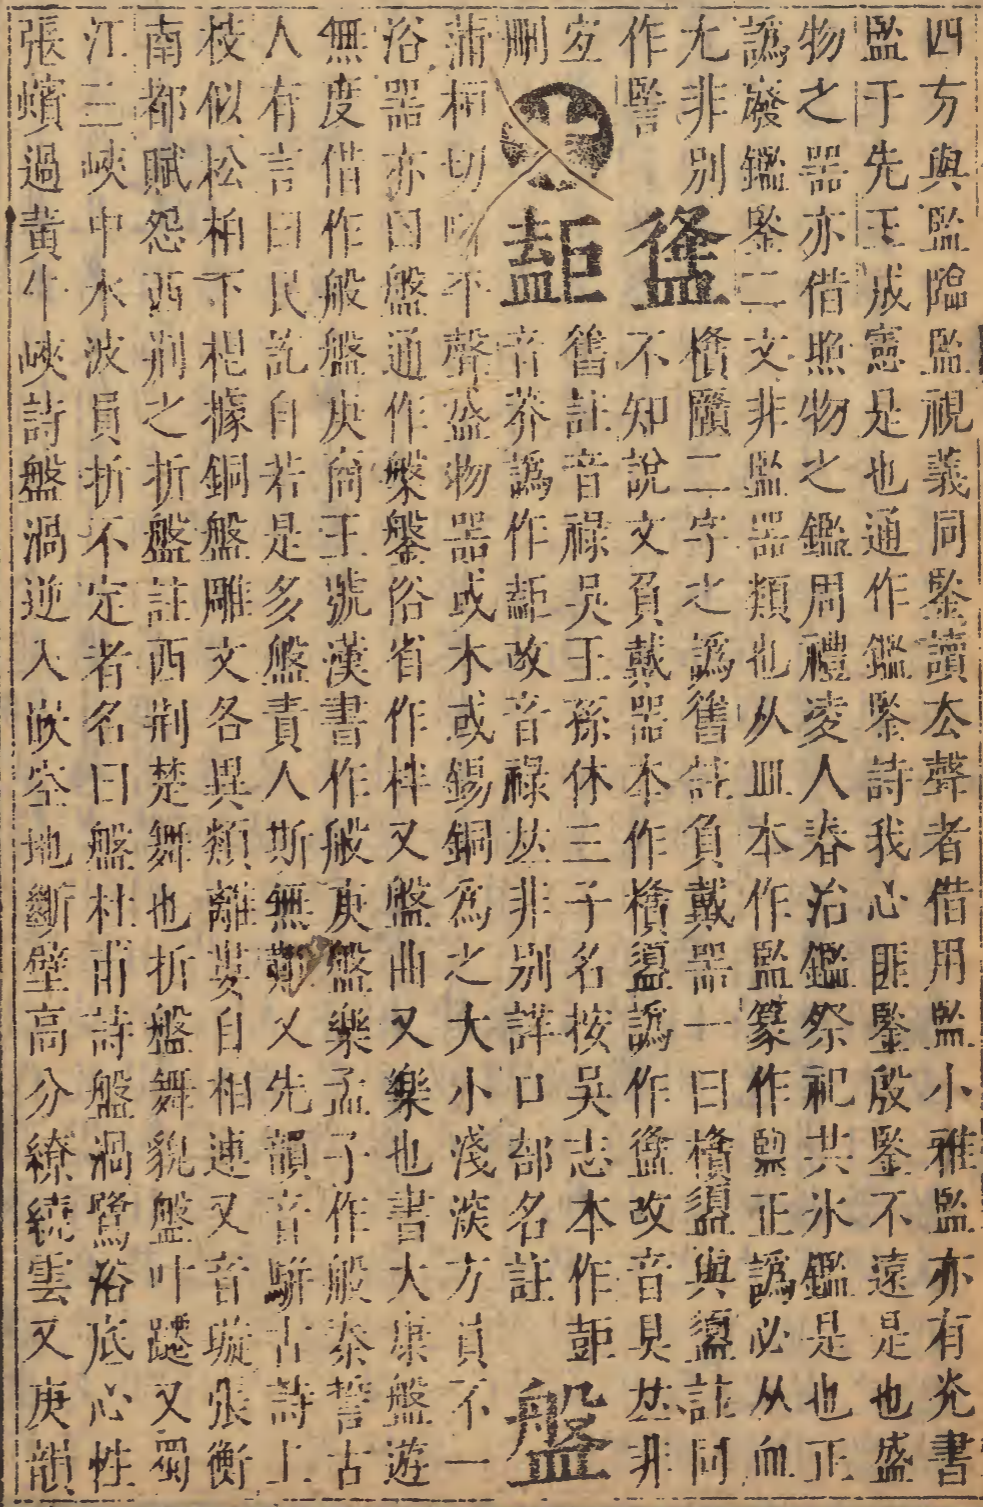 四方與監臨監視義同鍳讀去聲者借用監小雅監亦有光書
監于先王成憲是也通作鑑鍳詩我心匪鍳殷鍳不遠是也盛
物之器亦借照物之鑑周禮凌人春治鑑祭祀共氷鑑是也正
譌廢鑑鍳二文非監器類也从皿本作監篆作監正譌必从血
尢非別 㰐䕎二字之譌舊註負戴器一曰㰐盨與盨註同
作譥 𥂖 不知說文負戴器本作㰐盨譌作𥂖改音見𠀤非
𥁃 舊註音祿吳王孫休三子名按吳志本作䣓
刪 音莽譌作𥁃改音祿𠀤非別詳口部名註 盤
蒲桓切 不聲盛物器或木或錫銅爲之大小淺深方員不一
浴器亦曰盤通作槃鎜俗省作柈又盤曲又樂也書大康盤遊
無度借作般盤庚商王號漢書作般庚盤樂孟子作般秦誓古
人有言曰民訖自若是多盤責人斯無艱又先韻音駢古詩上
枝似松柏下根據銅盤雕文各異類離婁自相連又音璇張衡
南都賦怨西荆之折盤註西荆楚舞也折盤舞貌盤叶躚又蜀
江三峽中水波員折不定者名曰盤杜甫詩盤渦鷺浴底心性
張蠙過黃牛峽詩盤渦逆入嵌空地斷壁高分繚繞雲又庚韻